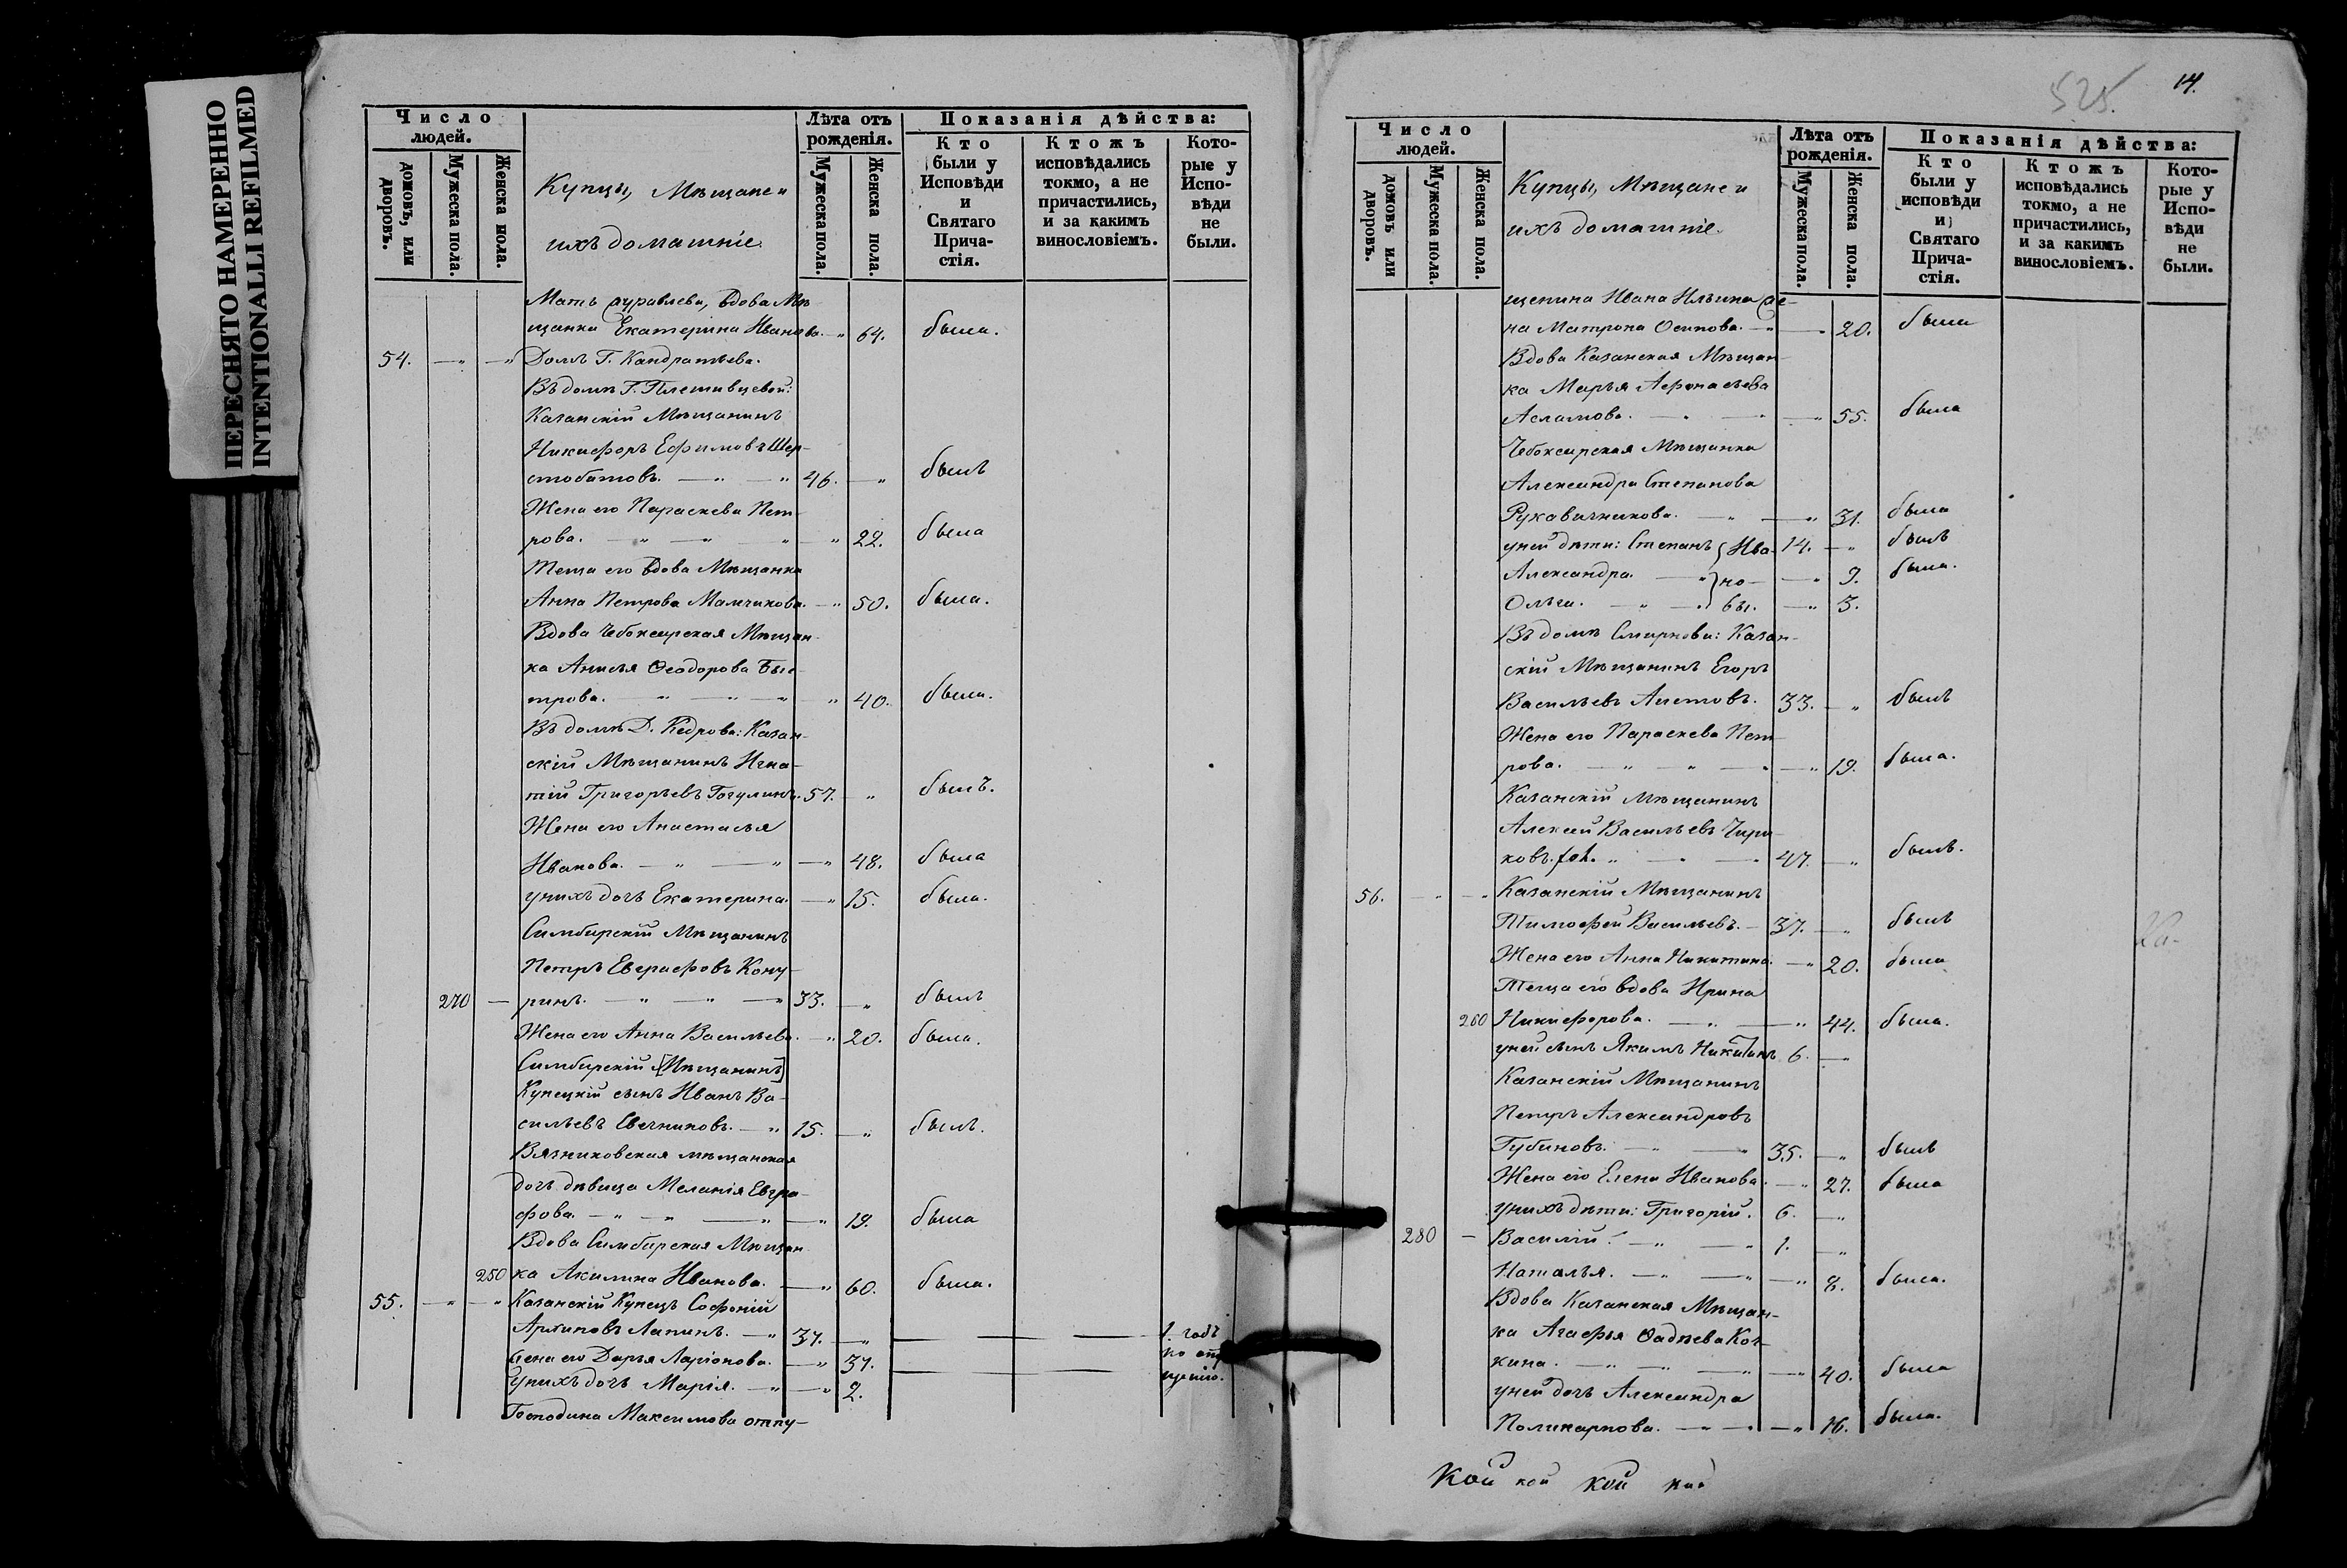 ПЕРЕСНЯТО НАМЕРЕННО
INTENTIONALLI REFILMED
Число людей.
домовъ, или дворовъ.
Мужеска пола.
Женска пола.
Купцы, Мѣщане и
ихъ домашніе.
Лѣта отъ рожденія.
Мужеска пола.
Женска пола.
Показанія дѣйства:
Кто были у Исповѣди и Святаго Прича-стія.
Ктожъ исповѣдались токмо, а не причастились, и за какимъ винословіемъ.
Кото-рые у Испо-вѣди не были.
Мать Журавлева, вдова Мѣ-
щанка Екатерина Иванова. - " 64. была.
54. - " - " Домъ Г. Кандратьева.
Въ домѣ Г. Плешивцевой:
Казанскій Мѣщанинъ
Никифоръ Ефимовъ Шер-
стобитовъ. - " - " 46. - " былъ
Жена его Параскева Пет-
рова. - " - " - " - " 22. была
Теща его вдова Мѣщанка
Анна Петрова Мамчикова. - " 50. была.
Вдова Чебоксарская Мѣщан-
ка Анисья Ѳеодорова Быс-
трова. - " - " - " - " 40. была.
Въ домѣ Д. Кедрова: Казан-
скій Мѣщанинъ Игна-
тій Григорьевъ 57. - " былъ.
Жена его Анастасья
Иванова. - " - " - " 48. была
у нихъ дочь Екатерина. - " 15. была.
Симбирскій Мѣщанинъ
Петръ Евграфовъ Кону-
270 - ринъ. - " - " - " 33. - " былъ
Жена его Анна Васильева. - " 20. была.
Симбирскій [Мѣщанинъ]
Купецкій сынъ Иванъ Ва-
сильевъ Свечниковъ. - " 15. - " былъ.
Вязниковская мѣщанская
дочь дѣвица Меланія Евгра-
фова. - " - " - " - " 19. была
Вдова Симбирская Мѣщан-
250 ка Акилина Иванова. - " 60. была.
55. - " - " Казанскій Купецъ Софоній
Архиповъ Лапинъ. - " 37. - " 1. годъ
Жена его Дарья Ларіонова. - " 37. по опу-
у нихъ дочь Марія. - " - " 2. щенію.
Господина Максимова отпу-
525. 14.
Число людей.
домовъ или дворовъ.
Мужеска пола.
Женска пола.
Купцы, Мѣщане и
ихъ домашніе.
Лѣта отъ рожденія.
Мужеска пола.
Женска пола.
Показанія дѣйства:
Кто были у исповѣди и Святаго Прича-стія.
Ктожъ исповѣдались токмо, а не причастились, и за какимъ винословіемъ.
Кото-рые у Испо-вѣди не были.
щенина Ивана Ильина Же-
на Матрона Осипова. - " - " 20. была
Вдова Казанская Мѣщан-
ка Марья Афонасьева
Асламова. - " - " - " 55. была
Чебоксарская Мѣщанка
Александра Степанова
Рукавичникова. - " - " 31. была
у ней дѣти: Степанъ } Ива- 14. - " былъ
Александра. - " } но- - " 9. была.
Ольга. - " - " } вы. - " 3.
Въ домѣ Смирнова: Казан-
скій Мѣщанинъ Егоръ
Васильевъ Аистовъ. 33. - " былъ
Жена его Параскева Пет-
рова. - " - " - " - " 19. была.
Казанскій Мѣщанинъ
Алексѣй Васильевъ Чири-
ковъ. - " - " 47. - " былъ.
56. - " - " Казанскій Мѣщанинъ
Тимофей Васильевъ. - 37. - " былъ
Жена его Анна Никитина. - " 20. была
Теща его вдова Ирина
260 Никифорова. - " - " 44. была.
у ней сынъ Якимъ Никитинъ 6. - "
Казанскій Мѣщанинъ
Петръ Александровъ
Губиновъ. - " - " 35. - " былъ
Жена его Елена Иванова. - " 27. была
у нихъ дѣти: Григорій. 6. - "
280 - Василій. - " - " 1. - "
Наталья. - " - " - " 8. была.
Вдова Казанская Мѣщан-
ка Агафья Ѳадѣева Коч-
кина. - " - " - " - " 40. была
у ней дочь Александра
Поликарпова. - " - " - " 16. была.
Кой кой кой